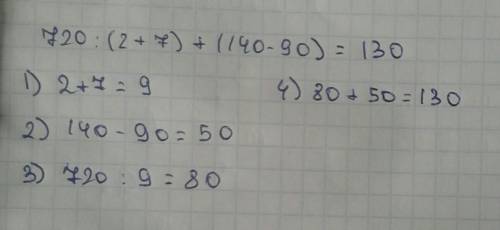 720 : (2 + 7) + (140 - 90) = 130
1) 2 + 7 = 9
2) 140 - 90 = 50
3) 720 : 9 = 80
4) 80 + 50 = 130